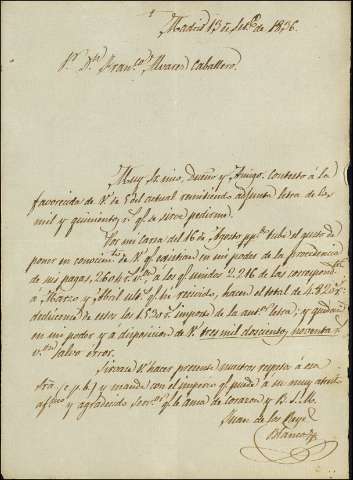 Madrid 13 de Set.e de 1836.
S.r D.n Fran.co Alvarez Caballero.
Muy S.r mio, Dueño y Amigo. Contesto á la
favorecida de V. de 5 del actual remitiendo adjunta letra de los
mil y quinientos r.s q.e se sirve pedirme.
Por mi carta del 16 de Agosto pp.do tube el gusto de
poner en conocim.to de V. q.e existian en mi poder de la
de sus pagas, 2604 r.s v.n á los q.e unidos 2.216 de los correspond.tes
á Marzo y Abril q.e he recivido, hacen el total de 4.820 r.s
deducense de estos los 1500 r.s importe de la ant.r letra; y quedan
en mi poder y á disposicion de V. tres mil doscientos noventa r.s
v.n salvo error.
Sirvase V. hacer presente nuestros respetos á esa
Sra. (c.p.b.) y mande con el imperio q.e puede á su muy atento
af.mo y agradecido serv.or q.e le ama de corazon y B.S.M.
Juan de los Reyes
Blanco